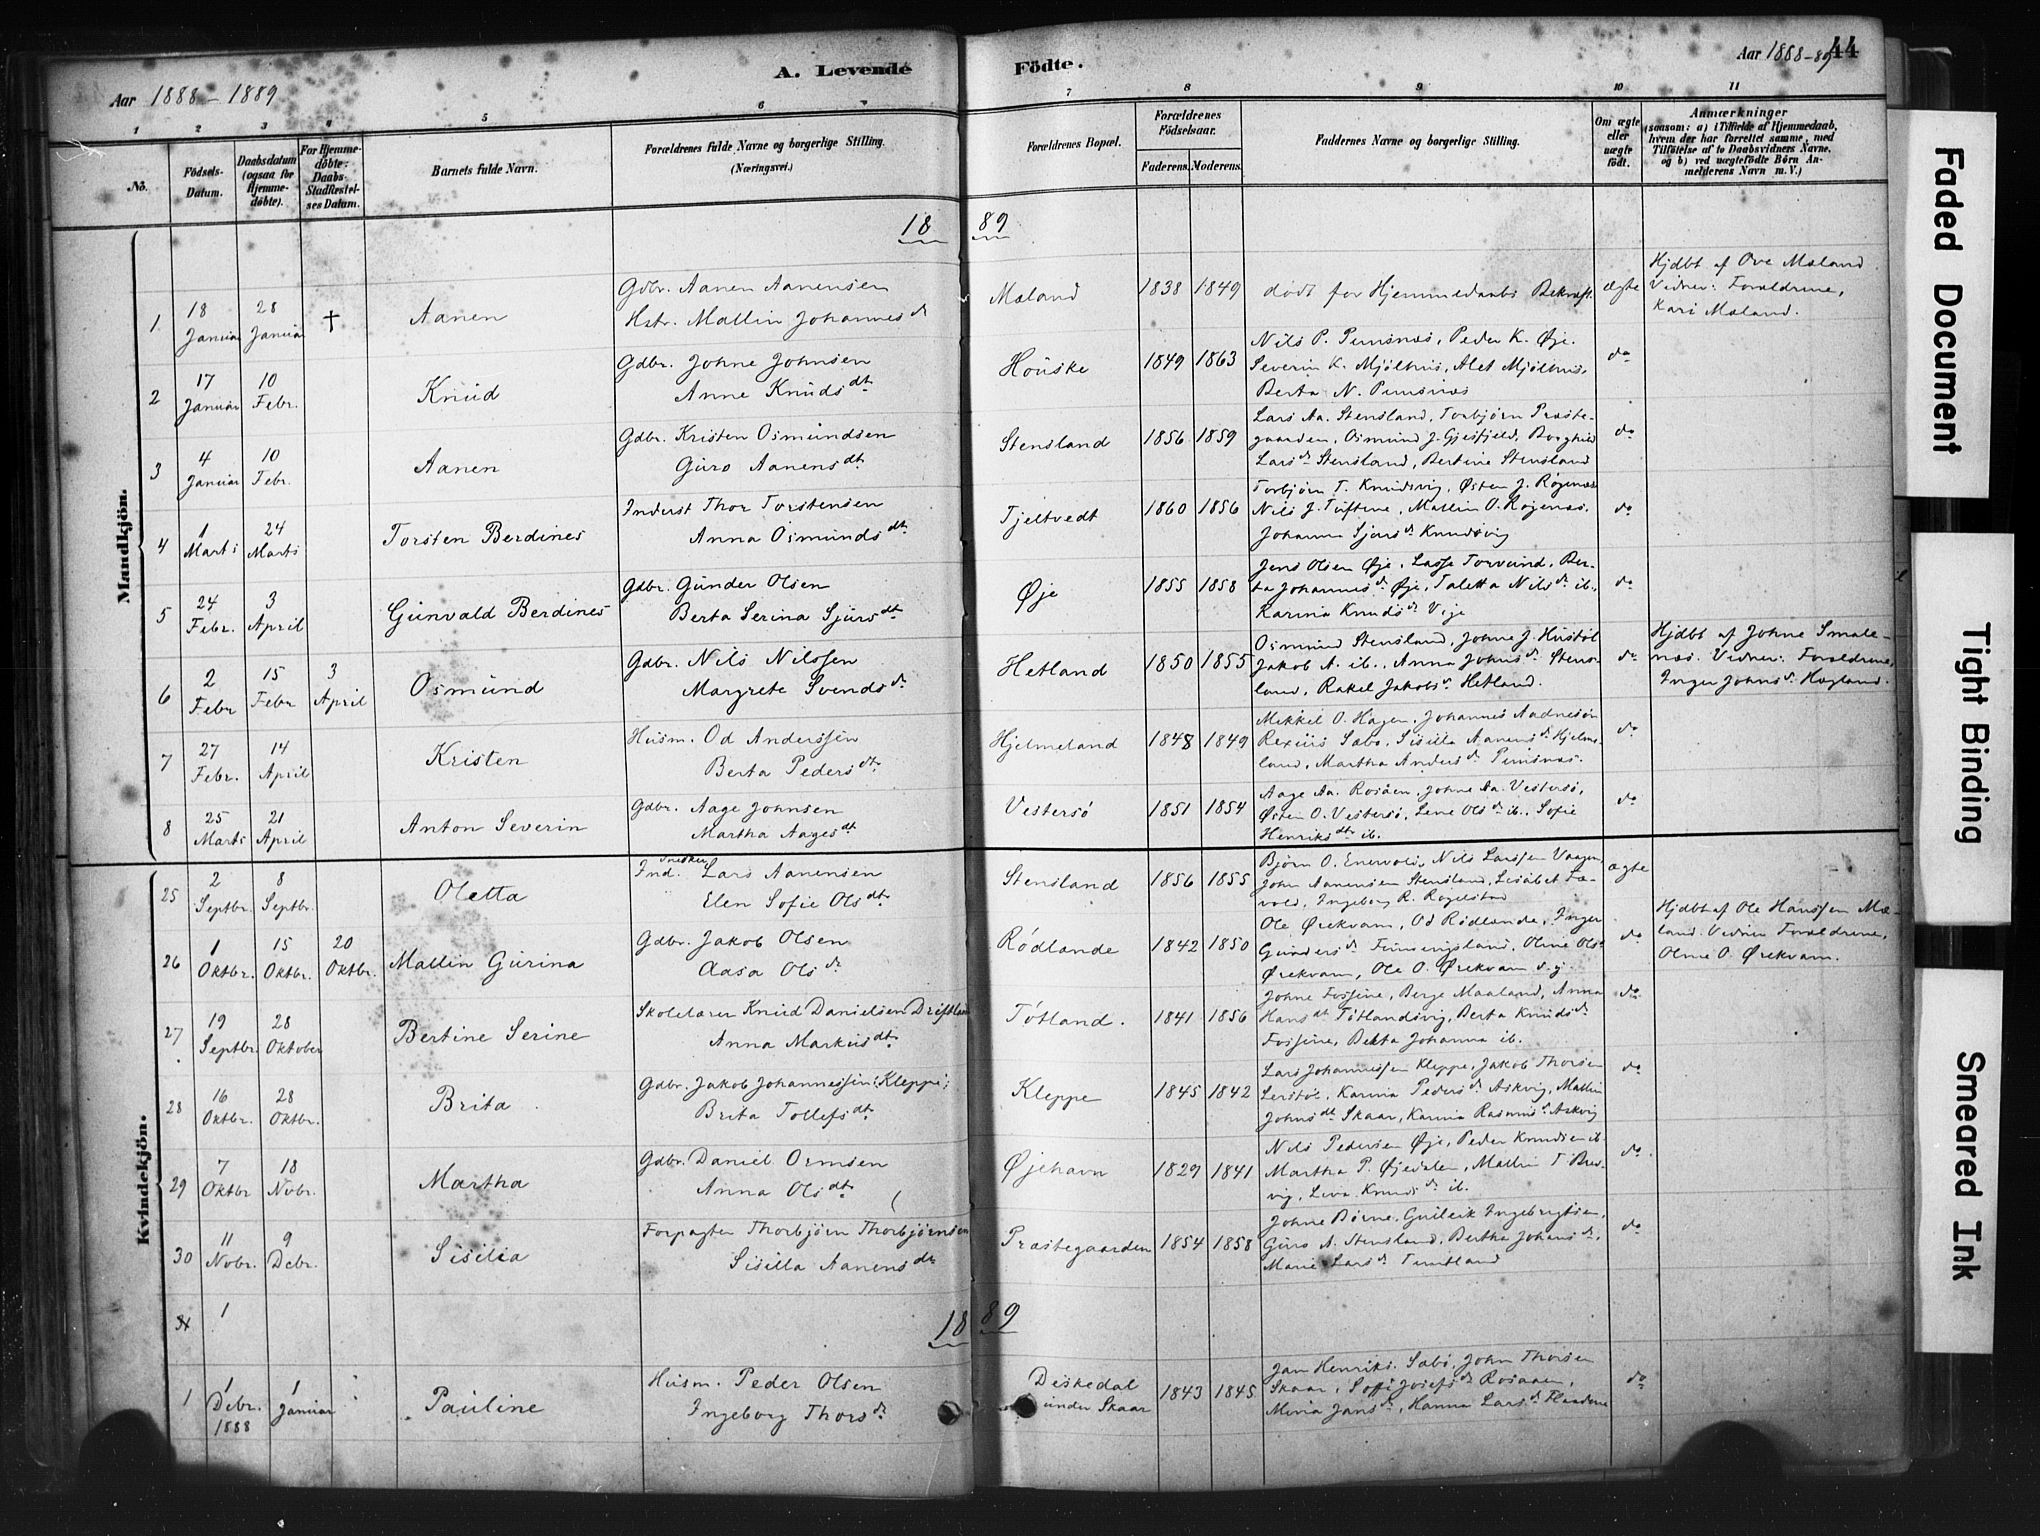 Aar 1888-1889
A. Levende Födte.
Aar 1888-89
44
1 2 3 4 5 6 7 8 9 10 11
No.
Födsels-Datum.
Daabsdatum (ogsaa for Hjemme-döbte).
For Hjemme-döbte: Daabs-Stadfæstel-ses Datum.
Barnets fulde Navn.
Forældrenes fulde Navne og borgerlige Stilling. (Næringsvei.)
Forældrenes Bopæl.
Forældrenes Födselsaar.
Faderens. Moderens.
Faddernes Navne og borgerlige Stilling.
Om ægte eller uægte födt.
Anmærkninger
(saasom: a) i Tilfælde af Hjemmedaab, hvem der har forrettet samme, med Tilföielse af to Daabsvidners Navne, og b) ved uægtefödte Börn Anmelderens Navn m. V.)
Mandkjön.
1889
1 18 Januar 28 Januar † Aanen
Gdbr. Aanen Aanensen
Hstr. Mallin Johannesdr
Mæland 1838 1849 dødt før Hjemmedaabs Bekræft. ægte
Hjdbt af Ove Mæland.
Vidner: Forældrene,
Kari Mæland.
2 17 Januar 10 Febr. Knud
Gdbr. Johne Johnsen
Anne Knudsdt
Houske 1849 1863
Nils P. Pundsnæs, Peder K. Øje.
Severin K. Mjølhus, Alet Mjølhus,
Berta N. Pundsnæs
do
3 4 Januar 10 Febr. Aanen
Gdbr. Kristen Osmundsen
Guro Aanensdt
Stensland 1856 1859
Lars Aa. Stensland, Torbjørn Præste-
gaarden, Osmund J. Gjesfjeld, Borghild
Larsdr Stensland, Bertine Stensland
do
4 1 Marts 24 Marts Torsten Berdines
Inderst Thor Torstensen
Anna Osmundsdt.
Tjeltvedt 1860 1856
Torbjørn T. Knudsvig, Østen J. Røgenæs
Nils J. Tuftene, Mallin O. Røgenæs,
Johanna Sjursdr Knudsvig
do
5 24 Febr. 3 April Gunvald Berdines
Gdbr. Gunder Olsen
Berta Serina Sjursdt
Øje 1855 1858
Jens Olsen Øje, Lasse Torvund, Ber-
ta Johannesdr Øje, Taletta Nilsdr ib.,
Karina Knudsdr Vije
do
6 2 Febr 15 Febr 3 April Osmund
Gdbr. Nils Nilssen
Margrete Svendsdr
Hetland 1850 1855
Osmund Stensland, Johne J. Hustøl
Jakob A. ib., Anna Johnsdr Stens-
land, Rakel Jakobsdr Hetland.
do
Hjdbt af Johne Smale-
næs. Vidner: Forældrene,
Inger Johnsdr Høgland.
7 27 Febr. 14 April Kristen
Husm. Od Anderssen
Berta Pedersdt
Hjelmeland 1848 1849
Mikkel O. Hagen, Johannes Aadnesøn
Rexius Sæbø, Sisilla Aanensdr Hjelme-
land, Martha Andersdr Pundsnæs.
do
8 25 Marts 21 April Anton Severin
Gdbr. Aage Johnsen
Martha Aagesdt
Vestersø 1851 1854
Aage Aa. Rosåen, Johne Aa. Vestersø,
Østen O. Vestersø, Lene Olsdr ib., Sofie
Henriksdtr ib.
do
Kvindekjön.
25 2 Septbr. 8 Septbr. Oletta
Ind. Snedker Lars Aanensen
Elen Sofie Olsdt.
Stensland 1856 1855
Bjørn O. Enervold, Nils Larssen Vaagen,
John Aanensen Stensland, Lisabet Læ-
vold, Ingeborg R. Røgelstad
ægte
26 1 Oktbr. 15 Oktbr. 20 Oktbr. Mallin Gurina
Gdbr. Jakob Olsen
Aasa Olsdr
Rødlande 1842 1850
Ole Ørekvam, Od Rødlande, Inger
Gundersdr Funningsland, Oline Olsdr
Ørekvam, Ole O. Ørekvam d. y.
do
Hjdbt af Ole Hanssen Mæ-
land. Vidner Forældrene,
Oline O. Ørekvam.
27 19 Septbr. 28 Oktober Bertine Serine
Skolelærer Knud Danielsen Driftland
Anna Markusdt.
Tøtland. 1841 1856
Johne Fossine, Berge Maaland, Anna
Hansdt Tøtlandsvig, Berta Knudsdr
Fossine, Berta Johanna ib.
do
28 16 Oktbr. 28 Oktbr. Brita
Gdbr. Jakob Johannessen (Kleppe)
Brita Tollefsdt.
Kleppe 1845 1842
Lars Johannessen Kleppe, Jakob Thorsen
Lerstøl, Karina Pedersdr Askvig, Mallin
Johnsdt Skaar, Karina Rasmusdr Askvig
do
29 7 Oktbr 18 Novbr. Martha
Gdbr. Daniel Ormsen
Anna Olsdt.
Øjehavn 1829 1841
Nils Pedersen Øje, Peder Knudsen ib.
Martha P. Øjedalen, Mallin T. Bres-
vig, Liva Knudsdr ib.
do
30 11 Novbr. 9 Debr. Sisilia
Forpagter Thorbjørn Thorbjørnsen
Sisilla Aanensdtr
Præstegaarden 1854 1858
Johne Børne, Guileik Ingebrigtsen,
Guro A. Stensland, Bertha Johansdr,
Marie Larsdr Tuntland
do
31 1
1889
1 1 Debr. 1888 1 Januar Pauline
Husm. Peder Olsen
Ingeborg Thorsdr
Diskedal
under Skaar
1843 1845
Jan Henriks. Sæbø, John Thorsen
Skaar, Sofi Josefsdr Rosaaen,
Miria Jansdr, Hanna Larsdr Flaadene
do
Faded Document
Tight Binding
Smeared Ink